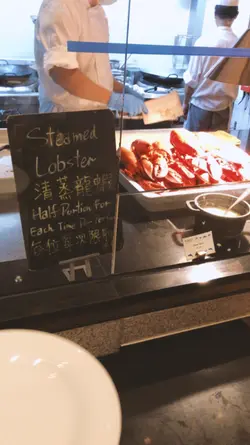 Steamed
Lobster
清蒸龍蝦
Half Portion For
Each Time Per
每位每次限